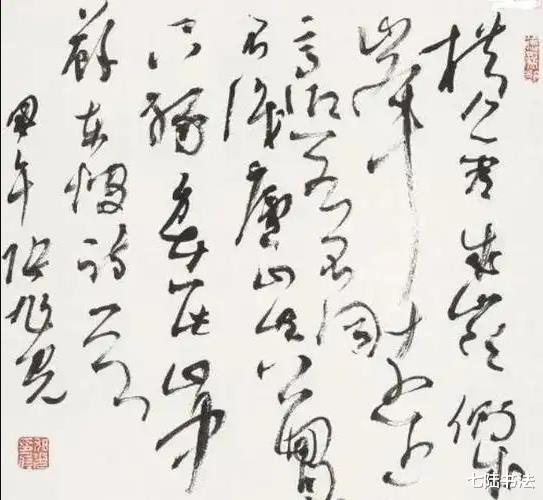 横看成岭侧成
峰远近
高低各不同
不识庐山真面目
只缘身在此山中
苏东坡诗一首
甲午张旭光
七陆书法